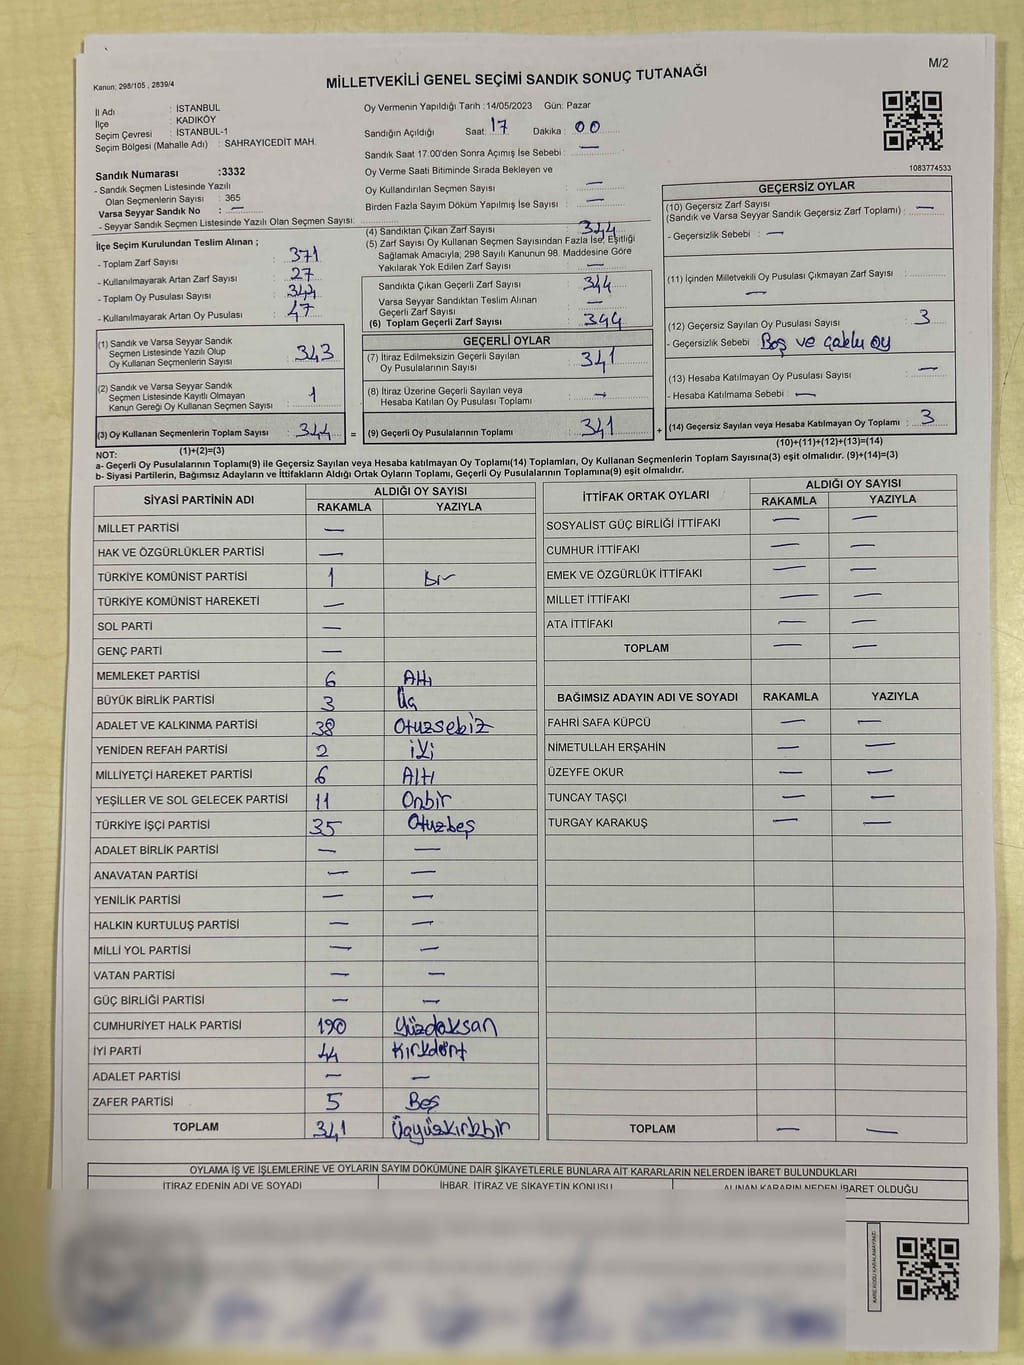 M/2
Kanun, 298/105 , 2839/4
MİLLETVEKİLİ GENEL SEÇİMİ SANDIK SONUÇ TUTANAĞI
İl Adı : İSTANBUL
İlçe : KADIKÖY
Seçim Çevresi : İSTANBUL-1
Seçim Bölgesi (Mahalle Adı) : SAHRAYICEDİT MAH.
Sandık Numarası :3332
- Sandık Seçmen Listesinde Yazılı
Olan Seçmenlerin Sayısı : 365
Varsa Seyyar Sandık No : —
- Seyyar Sandık Seçmen Listesinde Yazılı Olan Seçmen Sayısı:
İlçe Seçim Kurulundan Teslim Alınan ;
- Toplam Zarf Sayısı : 371
- Kullanılmayarak Artan Zarf Sayısı : 27
- Toplam Oy Pusulası Sayısı : 344
- Kullanılmayarak Artan Oy Pusulası : 47
(1) Sandık ve Varsa Seyyar Sandık
Seçmen Listesinde Yazılı Olup
Oy Kullanan Seçmenlerin Sayısı : 343
(2) Sandık ve Varsa Seyyar Sandık
Seçmen Listesinde Kayıtlı Olmayan
Kanun Gereği Oy Kullanan Seçmen Sayısı : 1
(3) Oy Kullanan Seçmenlerin Toplam Sayısı : 344 =
(1)+(2)=(3)
Oy Vermenin Yapıldığı Tarih :14/05/2023 Gün: Pazar
Sandığın Açıldığı Saat: 17 Dakika : 00
Sandık Saat 17:00'den Sonra Açımış İse Sebebi : —
Oy Verme Saati Bitiminde Sırada Bekleyen ve
Oy Kullandırılan Seçmen Sayısı : —
Birden Fazla Sayım Döküm Yapılmış İse Sayısı : —
(4) Sandıktan Çıkan Zarf Sayısı : 344
(5) Zarf Sayısı Oy Kullanan Seçmen Sayısından Fazla İse, Eşitliği
Sağlamak Amacıyla, 298 Sayılı Kanunun 98. Maddesine Göre
Yakılarak Yok Edilen Zarf Sayısı : —
Sandıkta Çıkan Geçerli Zarf Sayısı : 344
Varsa Seyyar Sandıktan Teslim Alınan
Geçerli Zarf Sayısı : —
(6) Toplam Geçerli Zarf Sayısı : 344
GEÇERLİ OYLAR
(7) İtiraz Edilmeksizin Geçerli Sayılan
Oy Pusulalarının Sayısı : 341
(8) İtiraz Üzerine Geçerli Sayılan veya
Hesaba Katılan Oy Pusulası Toplamı : —
(9) Geçerli Oy Pusulalarının Toplamı : 341 +
1083774533
GEÇERSİZ OYLAR
(10) Geçersiz Zarf Sayısı
(Sandık ve Varsa Seyyar Sandık Geçersiz Zarf Toplamı) : —
- Geçersizlik Sebebi : —
(11) İçinden Milletvekili Oy Pusulası Çıkmayan Zarf Sayısı :
—
(12) Geçersiz Sayılan Oy Pusulası Sayısı : 3
- Geçersizlik Sebebi : Boş ve çoklu oy
(13) Hesaba Katılmayan Oy Pusulası Sayısı : —
- Hesaba Katılmama Sebebi : —
(14) Geçersiz Sayılan veya Hesaba Katılmayan Oy Toplamı : 3
(10)+(11)+(12)+(13)=(14)
NOT:
a- Geçerli Oy Pusulalarının Toplamı(9) ile Geçersiz Sayılan veya Hesaba katılmayan Oy Toplamı(14) Toplamları, Oy Kullanan Seçmenlerin Toplam Sayısına(3) eşit olmalıdır. (9)+(14)=(3)
b- Siyasi Partilerin, Bağımsız Adayların ve İttifakların Aldığı Ortak Oyların Toplamı, Geçerli Oy Pusulalarının Toplamına(9) eşit olmalıdır.
SİYASİ PARTİNİN ADI ALDIĞI OY SAYISI
RAKAMLA YAZIYLA
MİLLET PARTİSİ —
HAK VE ÖZGÜRLÜKLER PARTİSİ —
TÜRKİYE KOMÜNİST PARTİSİ 1 bir
TÜRKİYE KOMÜNİST HAREKETİ —
SOL PARTİ —
GENÇ PARTİ —
MEMLEKET PARTİSİ 6 Altı
BÜYÜK BİRLİK PARTİSİ 3 Üç
ADALET VE KALKINMA PARTİSİ 38 Otuzsekiz
YENİDEN REFAH PARTİSİ 2 iki
MİLLİYETÇİ HAREKET PARTİSİ 6 Altı
YEŞİLLER VE SOL GELECEK PARTİSİ 11 Onbir
TÜRKİYE İŞÇİ PARTİSİ 35 Otuzbeş
ADALET BİRLİK PARTİSİ — —
ANAVATAN PARTİSİ — —
YENİLİK PARTİSİ — —
HALKIN KURTULUŞ PARTİSİ — —
MİLLİ YOL PARTİSİ — —
VATAN PARTİSİ — —
GÜÇ BİRLİĞİ PARTİSİ — —
CUMHURİYET HALK PARTİSİ 190 Yüzdoksan
İYİ PARTİ 44 Kırkdört
ADALET PARTİSİ — —
ZAFER PARTİSİ 5 Beş
TOPLAM 341 Üçyüzkırkbir
İTTİFAK ORTAK OYLARI ALDIĞI OY SAYISI
RAKAMLA YAZIYLA
SOSYALİST GÜÇ BİRLİĞİ İTTİFAKI — —
CUMHUR İTTİFAKI — —
EMEK VE ÖZGÜRLÜK İTTİFAKI — —
MİLLET İTTİFAKI — —
ATA İTTİFAKI — —
TOPLAM — —
BAĞIMSIZ ADAYIN ADI VE SOYADI RAKAMLA YAZIYLA
FAHRİ SAFA KÜPCÜ — —
NİMETULLAH ERŞAHİN — —
ÜZEYFE OKUR — —
TUNCAY TAŞÇI — —
TURGAY KARAKUŞ — —
TOPLAM — —
OYLAMA İŞ VE İŞLEMLERİNE VE OYLARIN SAYIM DÖKÜMÜNE DAİR ŞİKAYETLERLE BUNLARA AİT KARARLARIN NELERDEN İBARET BULUNDUKLARI
İTİRAZ EDENİN ADI VE SOYADI İHBAR, İTİRAZ VE ŞİKAYETİN KONUSU ALINAN KARARIN NEDEN İBARET OLDUĞU
KAREKODU KARALAMAYINIZ!